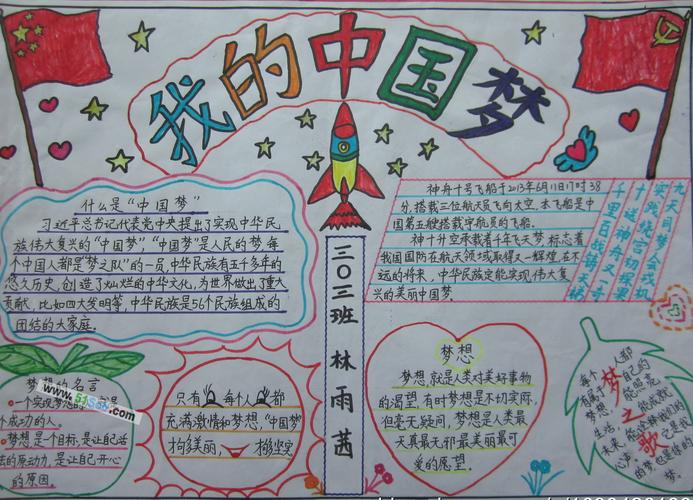 我的中国梦
什么是“中国梦”
习近平总书记代表党中央提出了实现中华民
族伟大复兴的“中国梦”“中国梦”是人民的梦,每
个中国人都是“梦之队”的一员,中华民族有五千多年的
悠久历史,创造了灿烂的中华文化,为世界做出了重大
贡献,比如四大发明等,中华民族是56个民族组成的
团结的大家庭.
神舟十号飞船于2013年6月11日17时38
分,搭载三位航天员飞向太空.本飞船是中
国第五艘搭载宇航员的飞船.
神十升空承载着千年飞天梦,标志着
我国国防在航天领域取得又一辉煌,在不
远的将来,中华民族定能实现伟大复
兴的美丽中国梦.
九天司梦会战机
实践绕宫初探果
十送神舟又一奇
千里日战铸天梯
三〇三班 林雨茜
梦想的名言
一个实现梦想的
个成功的人.
梦想是个目标,是让自己活
的原动力,是让自己开心
的原因.
www.515abc.com
只有 每个人都
充满激情和梦想,“中国梦”
梦想
梦想,就是人类对美好事物
的渴望,有时梦想是不切实际,
但毫无疑问,梦想是人类最
天真最无邪最美丽最可
爱的愿望.
梦之歌
每个人都
有属于自己的
梦想
生活
未来
心声
梦.